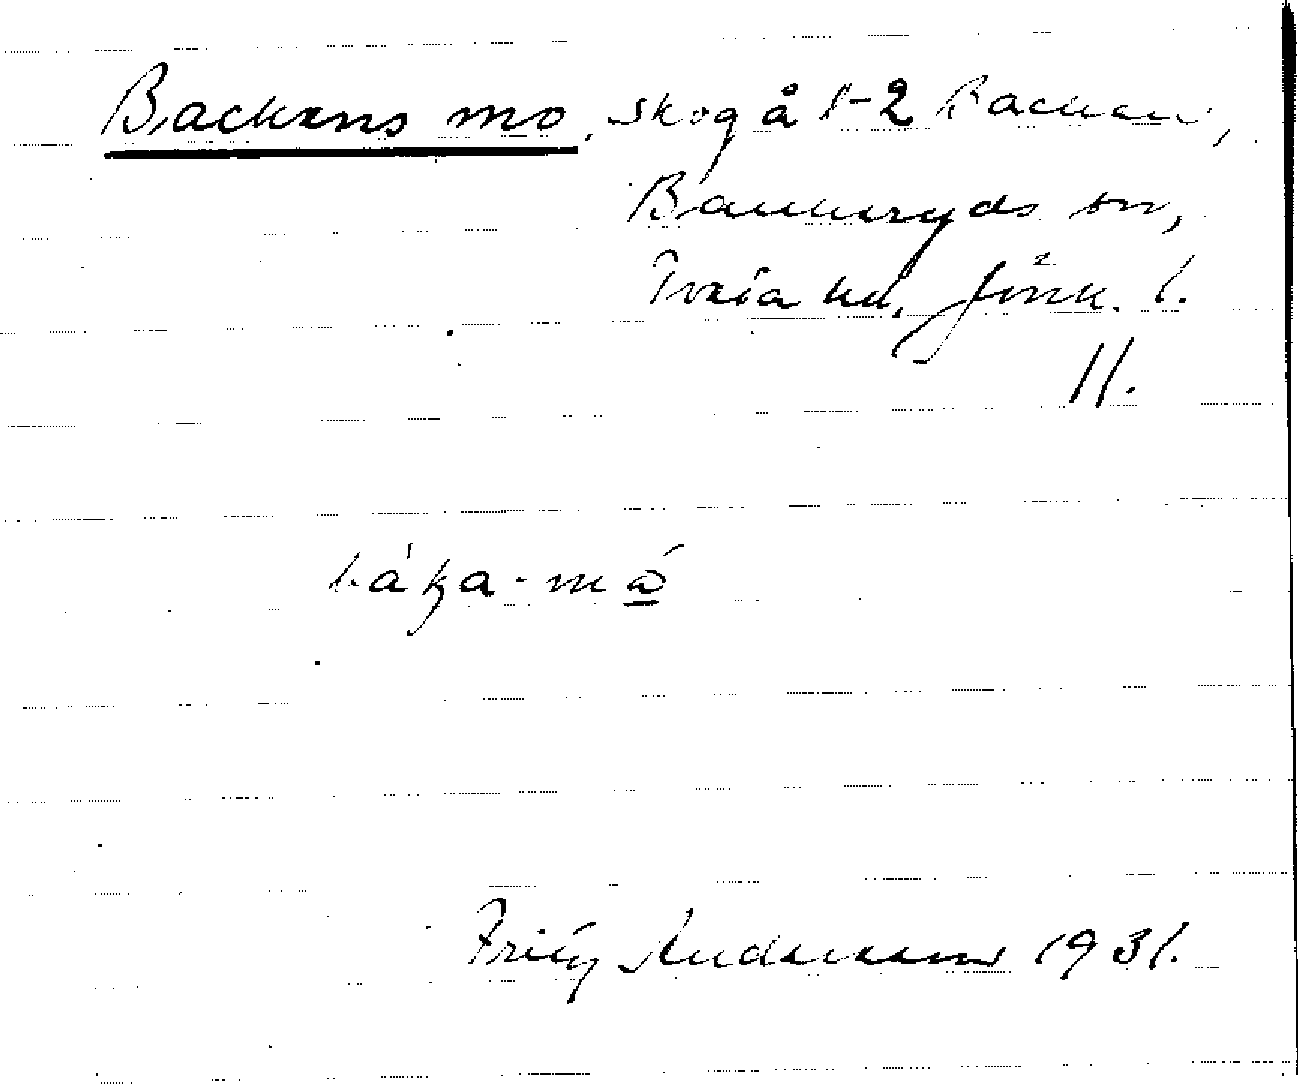 Backens mo, skog å 1-2 Backen,
Bankeryds sn,
Tveta hd, Jönk. l.
11.
báka-må
Fritz Andersson 1931.